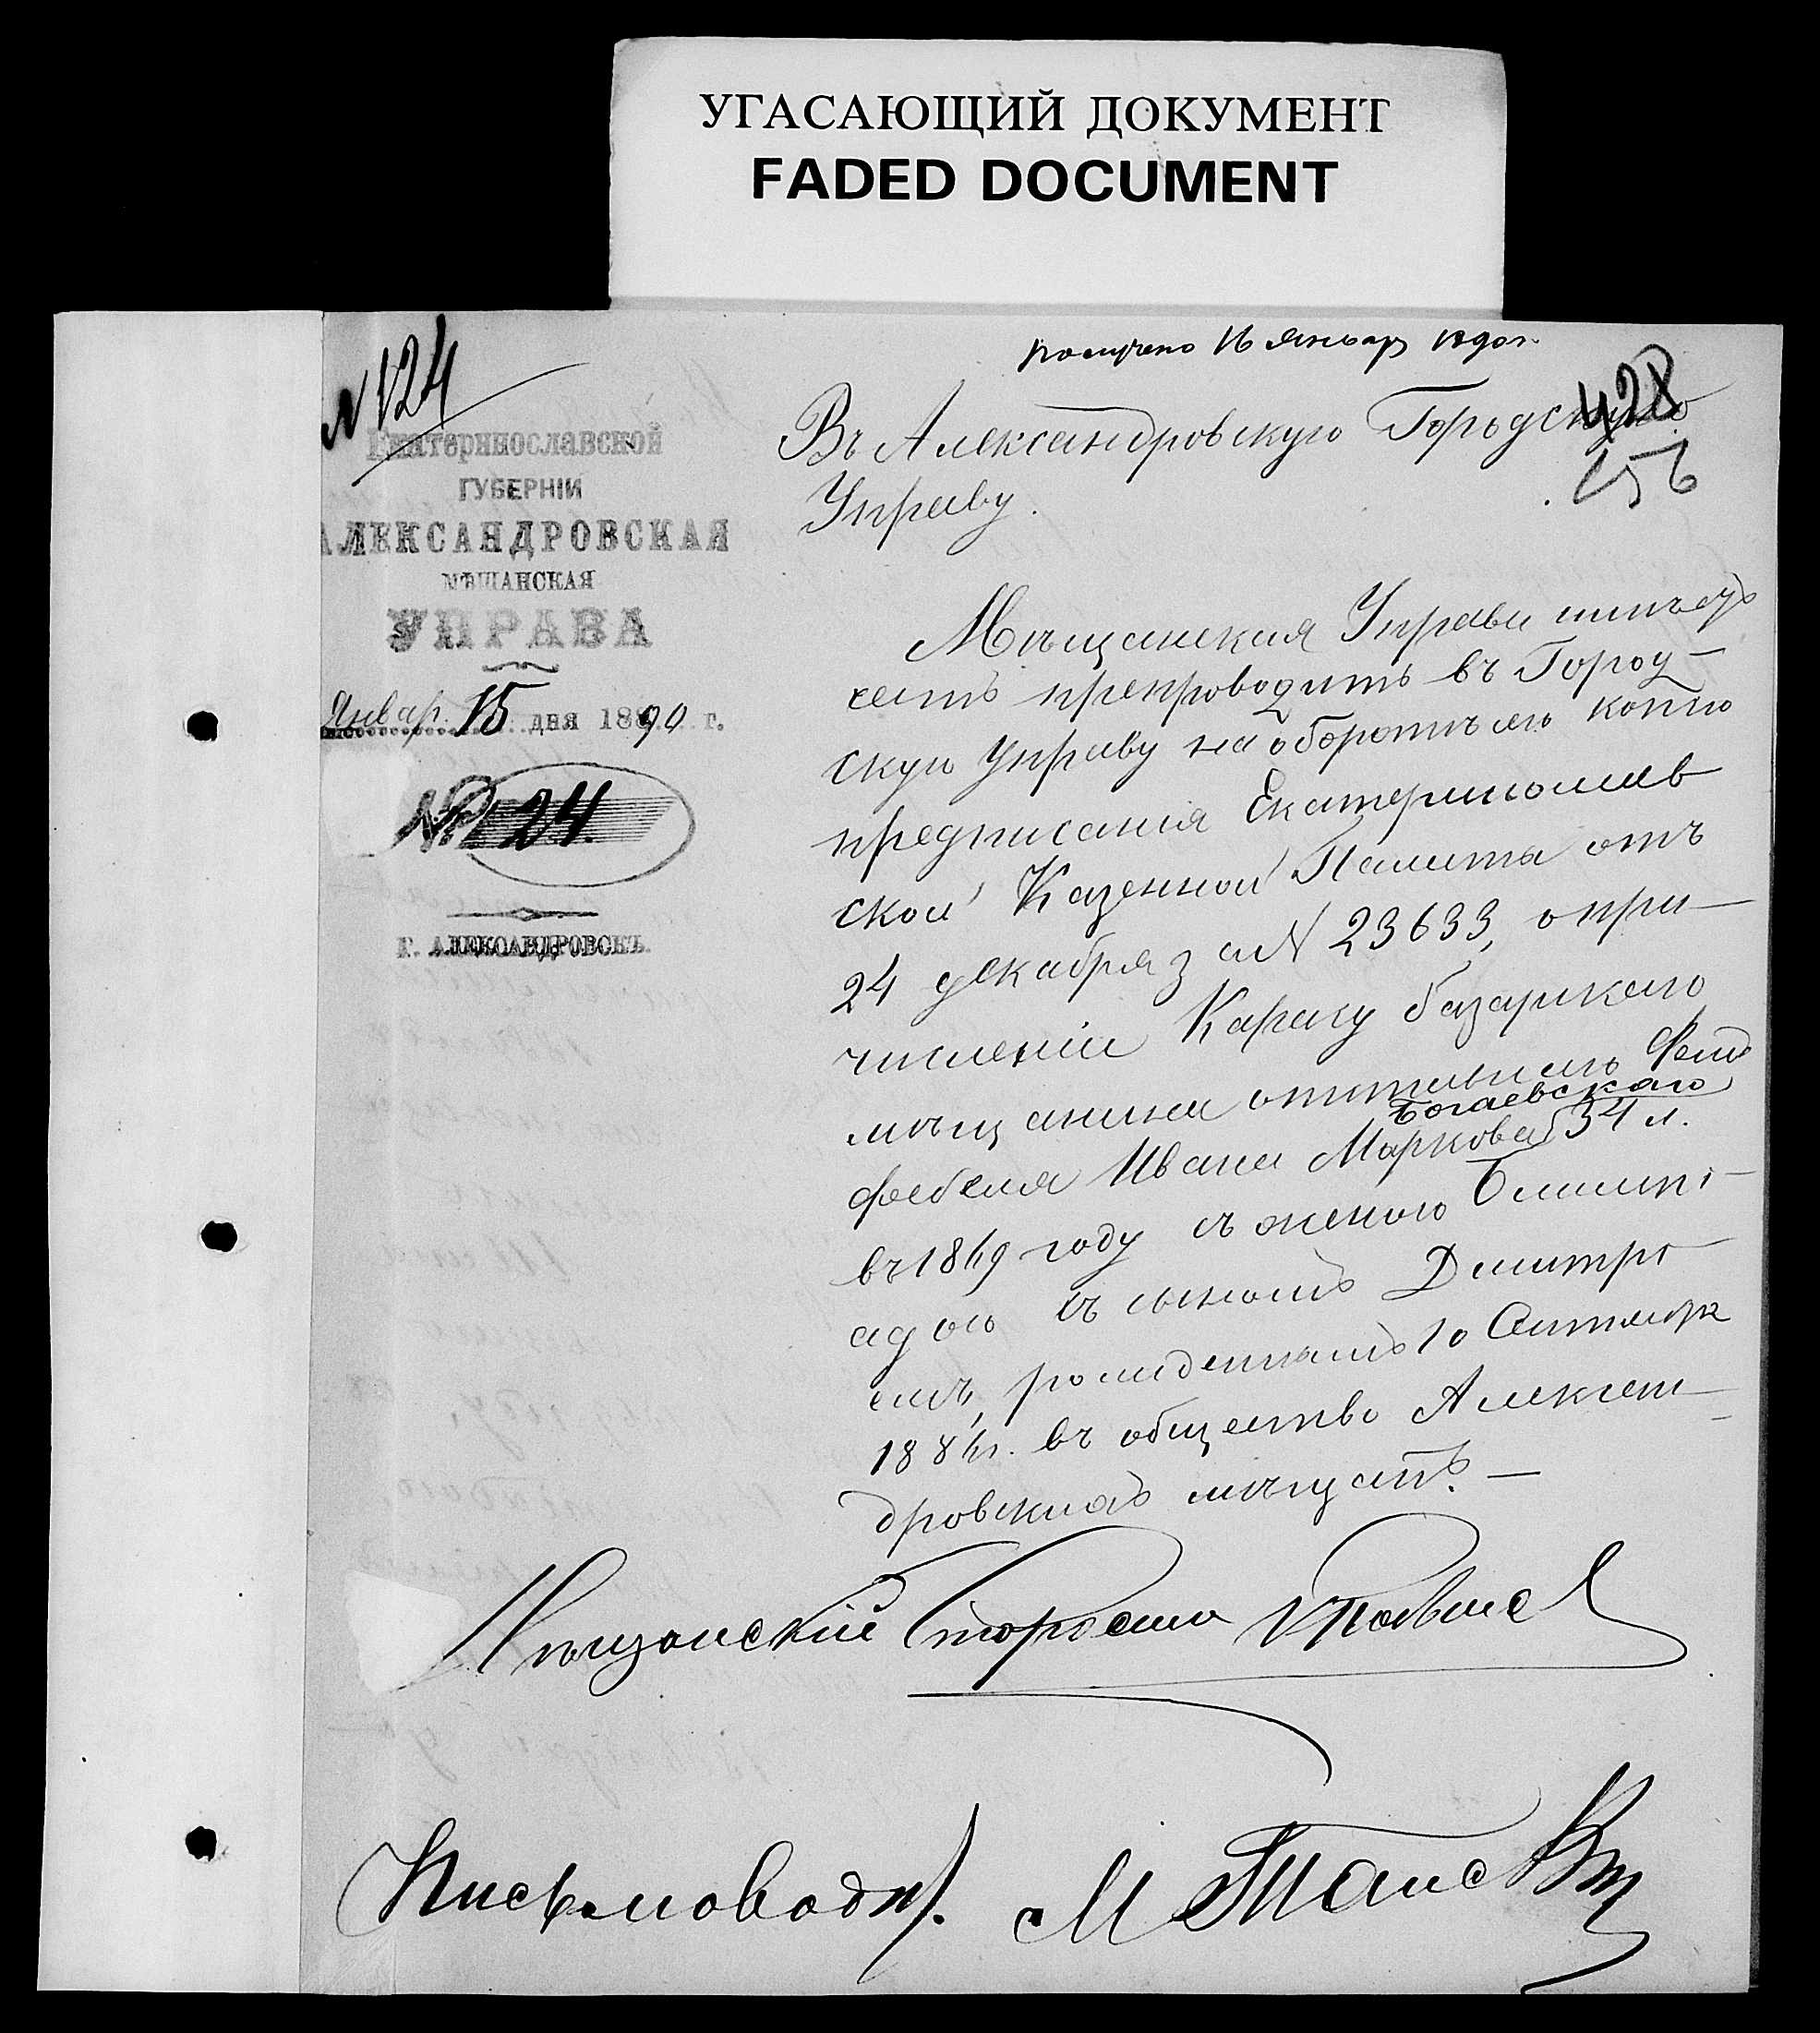 УГАСАЮЩИЙ ДОКУМЕНТ
FADED DOCUMENT
получено 16 Январ 1890 г.
N 124
428
156
Екатеринославской
ГУБЕРНІИ
АЛЕКСАНДРОВСКАЯ
МѢЩАНСКАЯ
УПРАВА
Январ. 15 дня 1890 г.
№ 124.
Г. АЛЕКСАНДРОВСКЪ.
Въ Александровскую Городскую
Управу.
Мѣщанская Управа имѣетъ
честь препроводить въ Город-
скую Управу на оборотѣ сего копію
предписанія Екатеринослав
ской Казенной Палаты отъ
24 декабря за N 23633, о при-
численіи Карасубазарскаго
мѣщанина отставнаго Фельд
фебеля Ивана Маркова Богаевскаго 34 л.
въ 1869 году съ женою
адою съ сыномъ Дмитрі-
емъ, рожденнымъ 10 Сентября
1886 г. въ общество Алексан-
дровскихъ мѣщанъ. —
Мѣщанскій Староста
Письмовод.